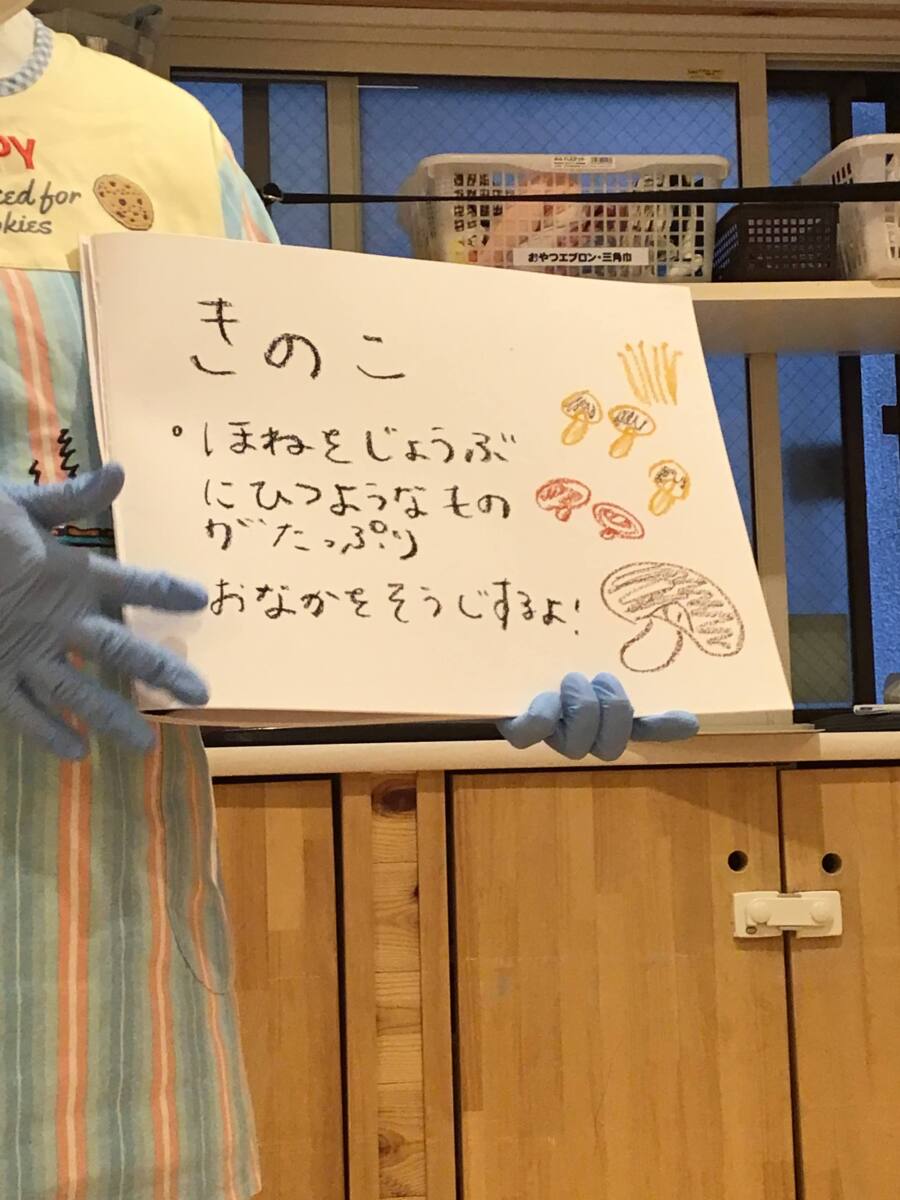 PY
ced for
okies
おやつエプロン・三角巾
きのこ
。ほねをじょうぶ
にひつようなもの
がたっぷり
おなかをそうじするよ!